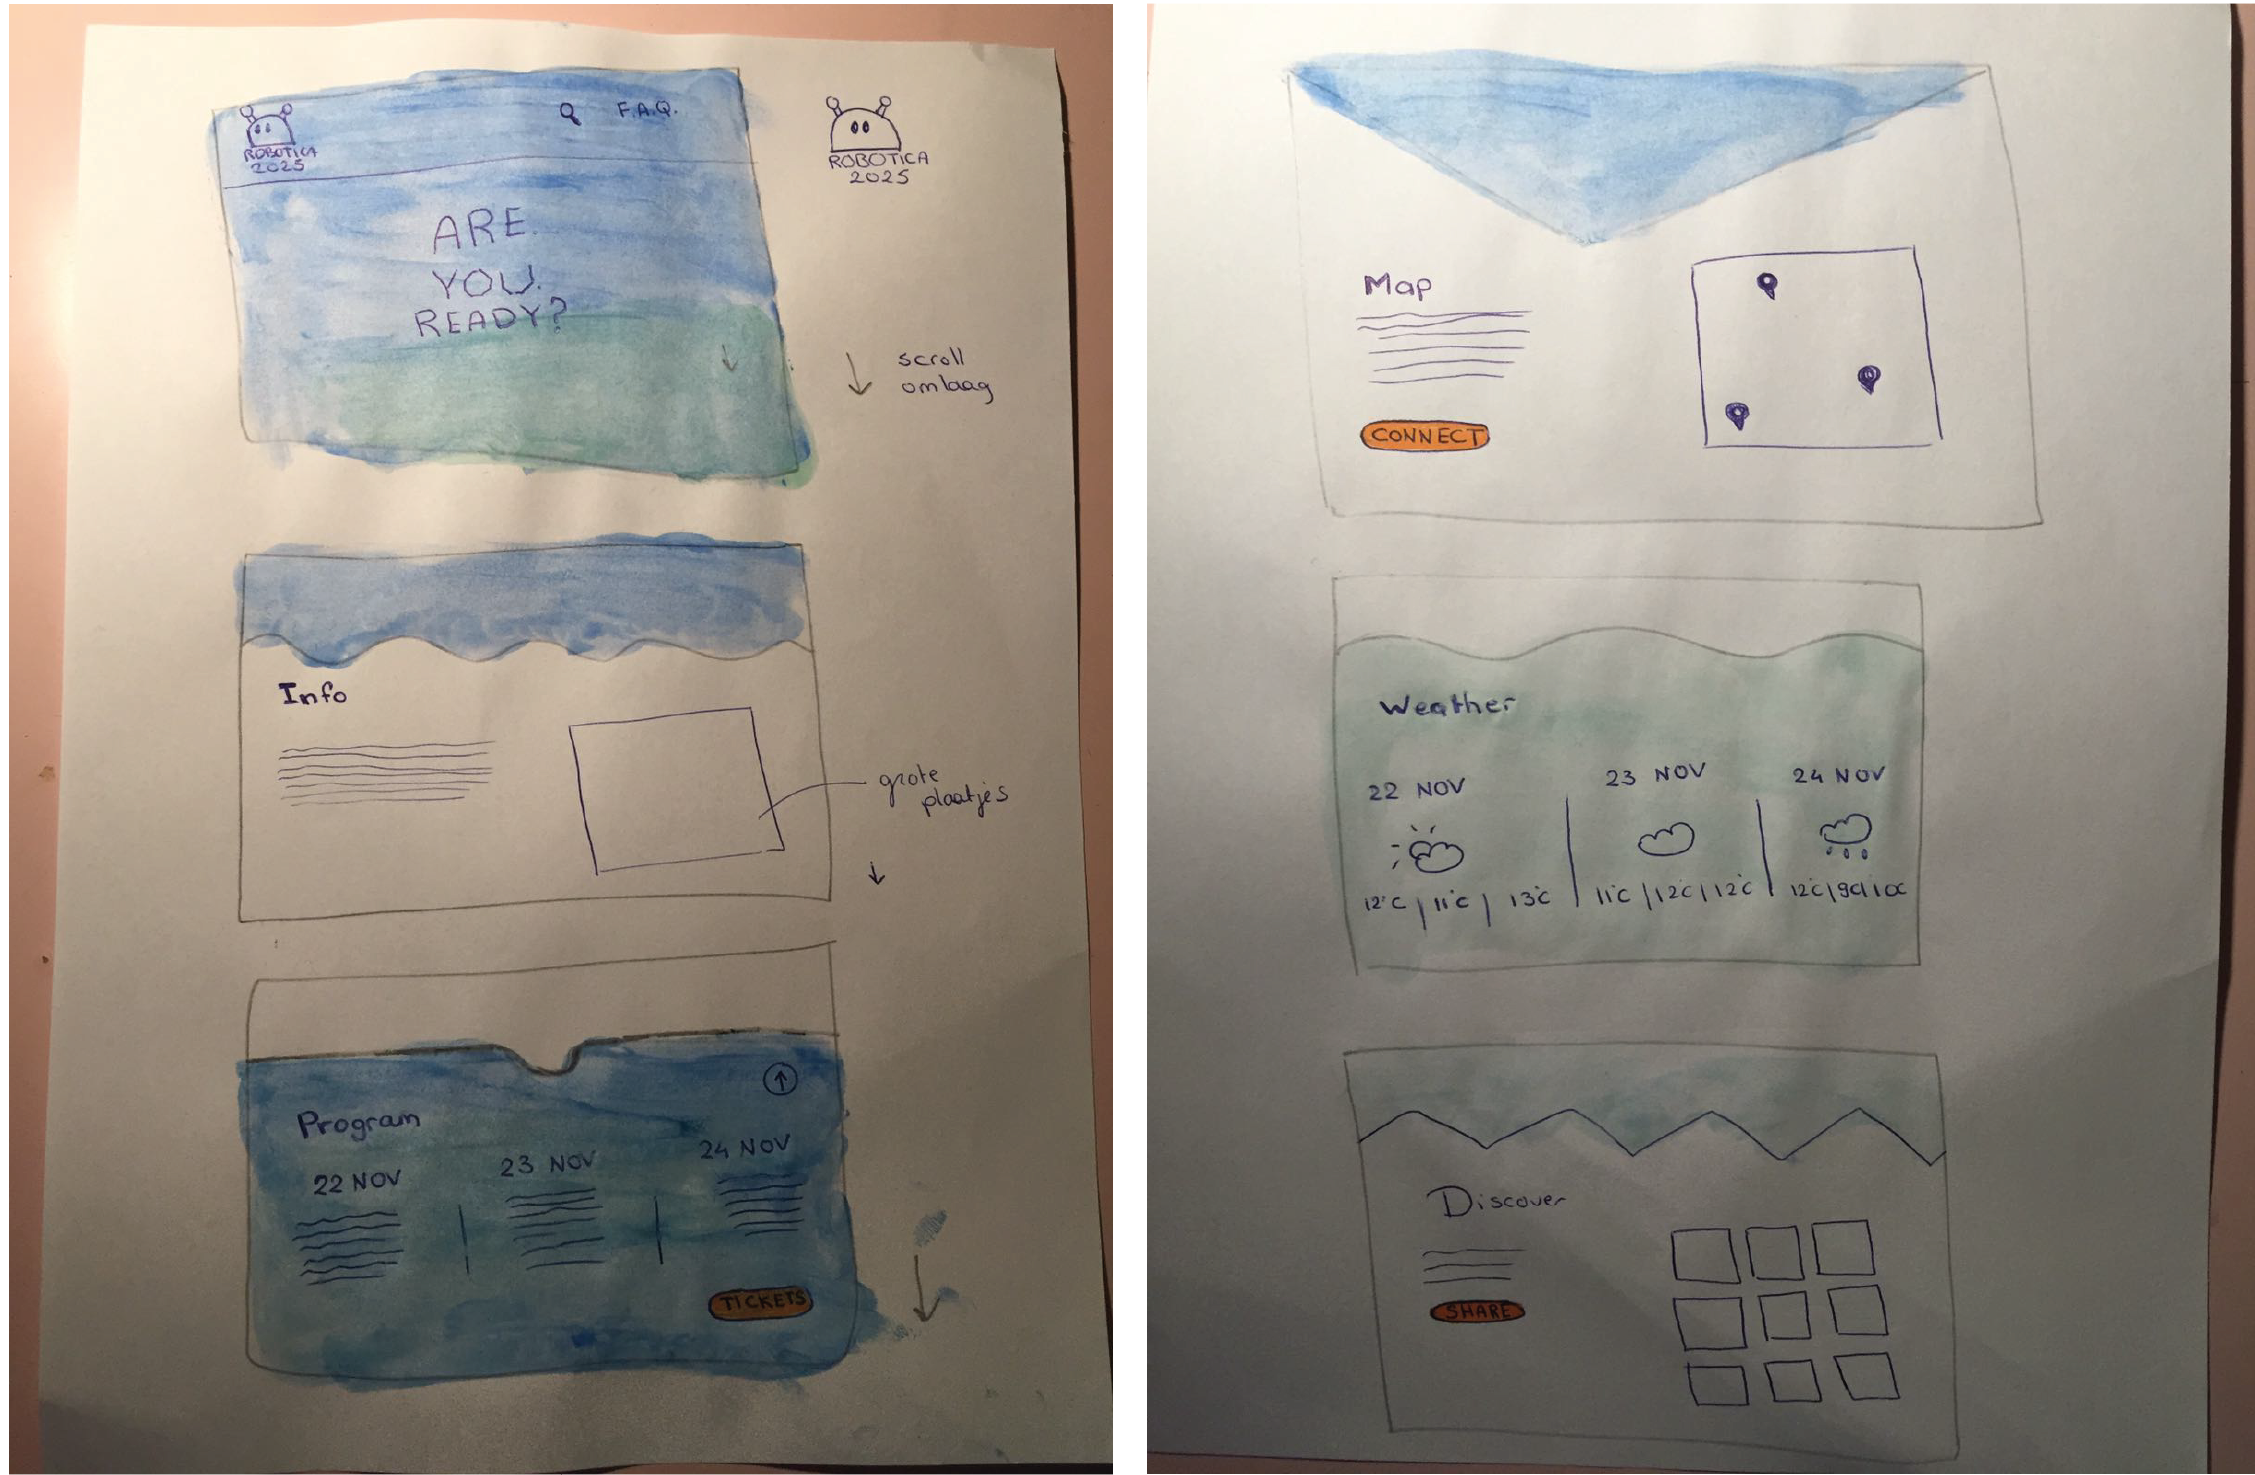 ROBOTICA
2025
F.A.Q.
ARE
YOU
READY?
ROBOTICA
2025
scroll
omlaag
Info
grote
plaatjes
Program
22 NOV
23 NOV
24 NOV
TICKETS
Map
CONNECT
Weather
22 NOV
23 NOV
24 NOV
12°C | 11°C | 13°C
11°C | 12°C | 12°C
12°C | 9C | 10C
Discover
SHARE